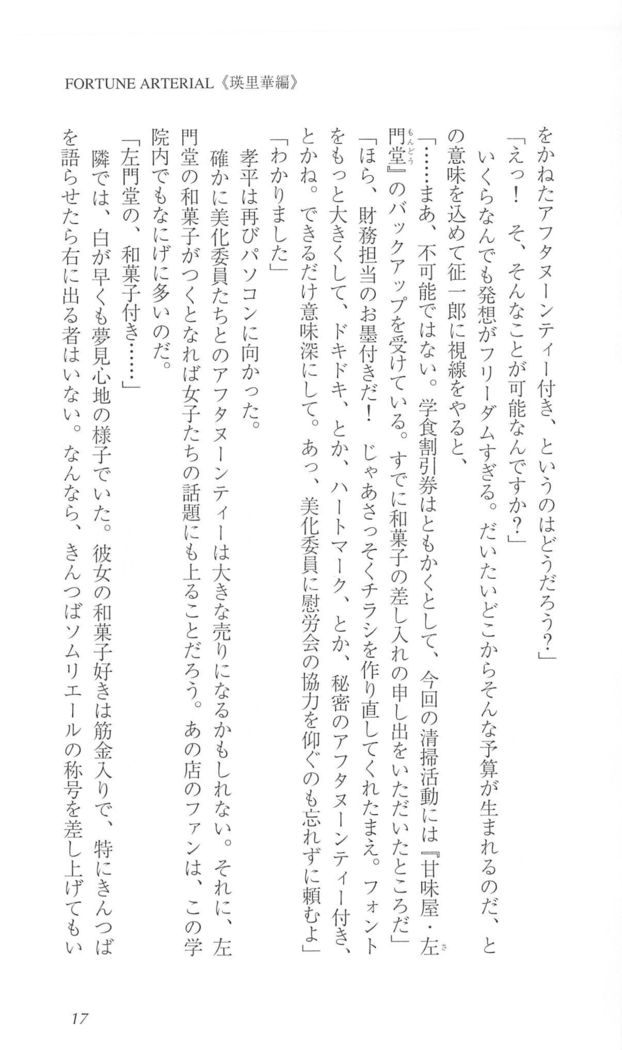 FORTUNE ARTERIAL《瑛里華編》
をかねたアフタヌーンティー付き、というのはどうだろう?」
「えっ! そ、そんなことが可能なんですか?」
いくらなんでも発想がフリーダムすぎる。だいたいどこからそんな予算が生まれるのだ、と
の意味を込めて征一郎に視線をやると、
「……まあ、不可能ではない。学食割引券はともかくとして、今回の清掃活動には『甘味屋・左
門堂』のバックアップを受けている。すでに和菓子の差し入れの申し出をいただいたところだ」
「ほら、財務担当のお墨付きだ! じゃあさっそくチラシを作り直してくれたまえ。フォント
をもっと大きくして、ドキドキ、とか、ハートマーク、とか、秘密のアフタヌーンティー付き、
とかね。できるだけ意味深にして。あっ、美化委員に慰労会の協力を仰ぐのも忘れずに頼むよ」
「わかりました」
孝平は再びパソコンに向かった。
確かに美化委員たちとのアフタヌーンティーは大きな売りになるかもしれない。それに、左
門堂の和菓子がつくとなれば女子たちの話題にも上ることだろう。あの店のファンは、この学
院内でもなにげに多いのだ。
「左門堂の、和菓子付き……」
隣では、白が早くも夢見心地の様子でいた。彼女の和菓子好きは筋金入りで、特にきんつば
を語らせたら右に出る者はいない。なんなら、きんつばソムリエールの称号を差し上げてもい
さ
もんどう
17